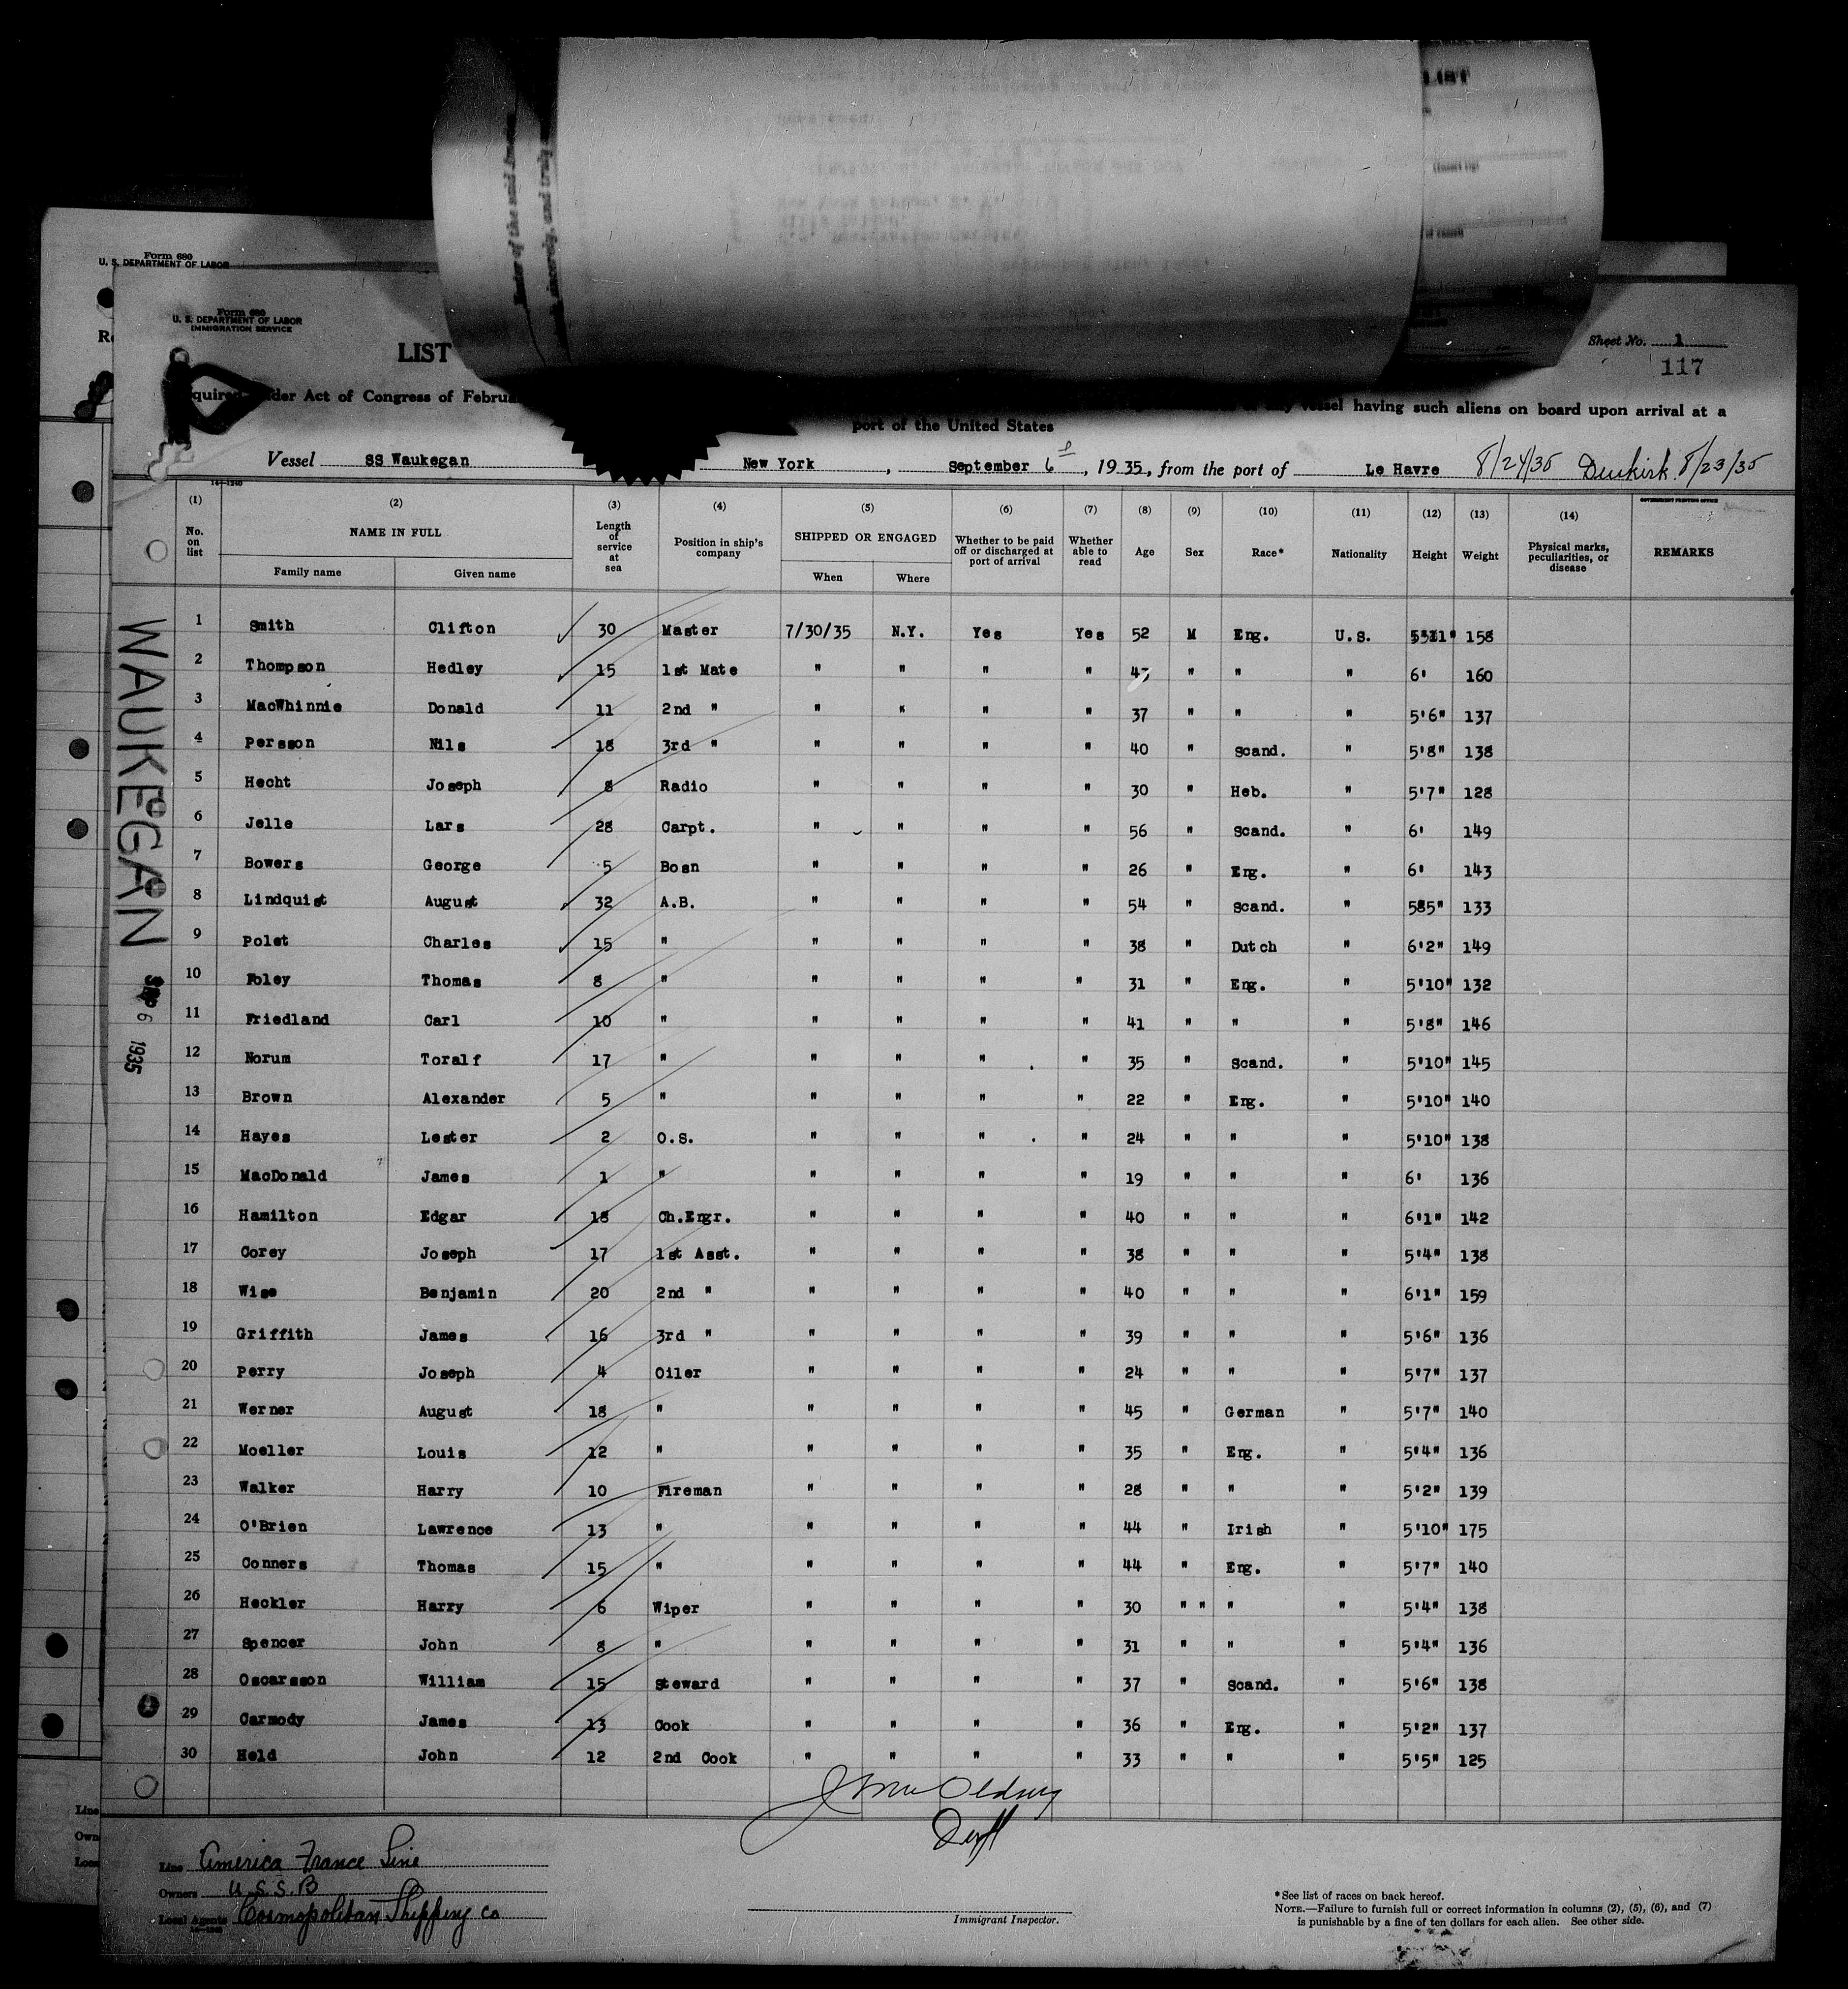 Form 680
U. S. DEPARTMENT OF LABOR
Form 680
U. S. DEPARTMENT OF LABOR
IMMIGRATION SERVICE
LIST
LIST
Sheet No. 1
117
Act of Congress of
vessel having such aliens on board upon arrival at a
port of the United States
Vessel SS Waukegan New York, September 6, 1935, from the port of Le Havre 8/24/35 Dunkirk 8/23/35
14-1240
GOVERNMENT PRINTING OFFICE
(1) (2) (3) (4) (5) (6) (7) (8) (9) (10) (11) (12) (13) (14)
No. on list NAME IN FULL Length of service at sea Position in ship's company SHIPPED OR ENGAGED Whether to be paid off or discharged at port of arrival Whether able to read Age Sex Race* Nationality Height Weight Physical marks, peculiarities, or disease REMARKS
Family name Given name When Where
1 Smith Clifton 30 Master 7/30/35 N.Y. Yes Yes 52 M Eng. U.S. 158
2 Thompson Hedley 15 1st Mate " " " " " " " 6' 160
3 MacWhinnie Donald 11 2nd " " " " " 37 " " " 5'6" 137
4 Persson Nils 18 3rd " " " " " 40 " Scand. " 5'8" 138
5 Hecht Joseph 8 Radio " " " " 30 " Heb. " 5'7" 128
6 Jelle Lars 28 Carpt. " " " " 56 " Scand. " 6' 149
7 Bowers George 5 Bosn " " " " 26 " Eng. " 6' 143
8 Lindquist August 32 A.B. " " " " 54 " Scand. " 585" 133
9 Polet Charles 15 " " " " " 38 " Dutch " 6'2" 149
10 Foley Thomas 8 " " " " " 31 " Eng. " 5'10" 132
11 Friedland Carl 10 " " " " " 41 " " " 5'8" 146
12 Norum Toralf 17 " " " " " 35 " Scand. " 5'10" 145
13 Brown Alexander 5 " " " " " 22 " Eng. " 5'10" 140
14 Hayes Lester 2 O.S. " " " " 24 " " " 5'10" 138
15 MacDonald James 1 " " " " " 19 " " " 6' 136
16 Hamilton Edgar 18 Ch.Engr. " " " " 40 " " " 6'1" 142
17 Corey Joseph 17 1st Asst. " " " " 38 " " " 5'4" 138
18 Wise Benjamin 20 2nd " " " " " 40 " " " 6'1" 159
19 Griffith James 16 3rd " " " " " 39 " " " 5'6" 136
20 Perry Joseph 4 Oiler " " " " 24 " " " 5'7" 137
21 Werner August 18 " " " " " 45 " German " 5'7" 140
22 Moeller Louis 12 " " " " " 35 " Eng. " 5'4" 136
23 Walker Harry 10 Fireman " " " " 28 " " " 5'2" 139
24 O'Brien Lawrence 13 " " " " " 44 " Irish " 5'10" 175
25 Conners Thomas 15 " " " " " 44 " Eng. " 5'7" 140
26 Heckler Harry 6 Wiper " " " " 30 " " " " 5'4" 138
27 Spencer John 8 " " " " " 31 " " " 5'4" 136
28 Oscarsson William 15 Steward " " " " 37 " Scand. " 5'6" 138
29 Carmody James 13 Cook " " " " 36 " Eng. " 5'2" 137
30 Held John 12 2nd Cook " " " " 33 " " " 5'5" 125
WAUKEGAN
SEP 6 1935
Line America France Line
Owners U.S.S.B
Local Agents Cosmopolitan Shipping Co
Immigrant Inspector.
*See list of races on back hereof.
NOTE.—Failure to furnish full or correct information in columns (2), (5), (6), and (7)
is punishable by a fine of ten dollars for each alien. See other side.